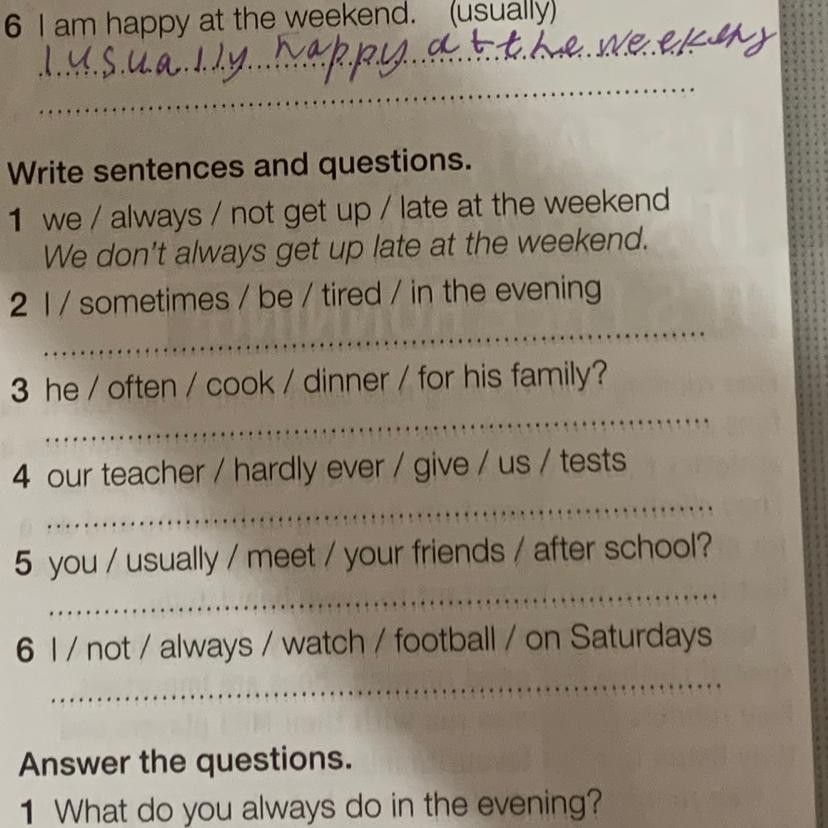 6 I am happy at the weekend. (usually)
I usually happy at the weekeny
Write sentences and questions.
1 we / always / not get up / late at the weekend
We don't always get up late at the weekend.
2 I / sometimes / be / tired / in the evening
3 he / often / cook / dinner / for his family?
4 our teacher / hardly ever / give / us / tests
5 you / usually / meet / your friends / after school?
6 I / not / always / watch / football / on Saturdays
Answer the questions.
1 What do you always do in the evening?